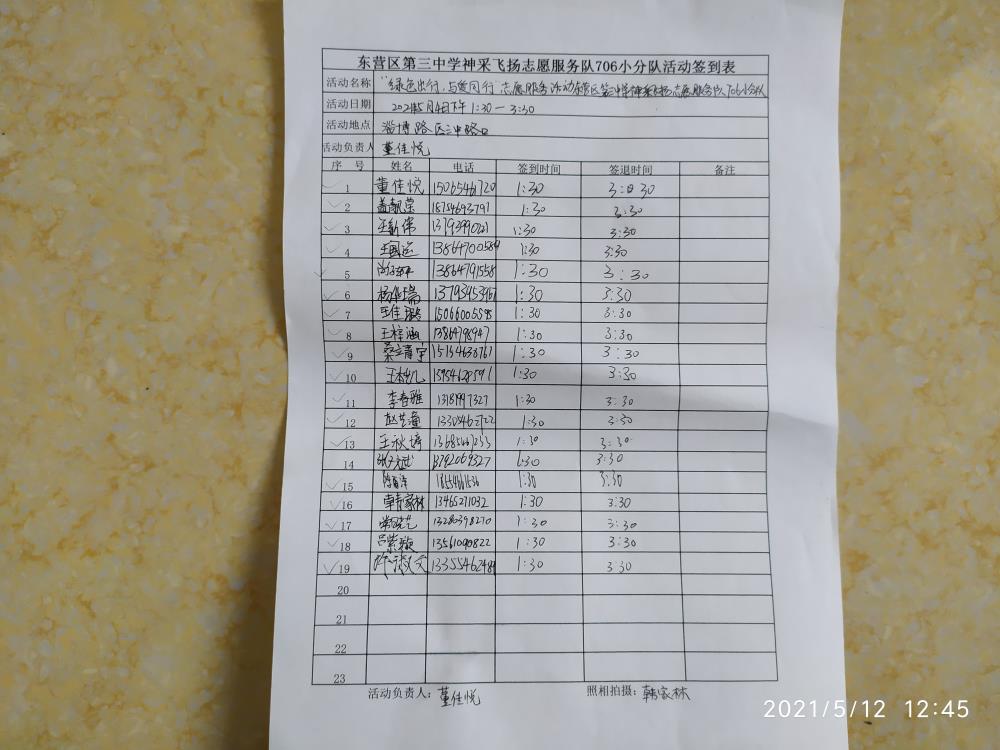 东营区第三中学神采飞扬志愿服务队706小分队活动签到表
活动名称 "绿色出行，与爱同行"志愿服务活动东营区第三中学神采飞扬志愿服务队706小分队
活动日期 2021年5月4日下午1:30—3:30
活动地点 淄博路区三中路口
活动负责人 董佳悦
序号 姓名 电话 签到时间 签退时间 备注
1 董佳悦 15065461720 1:30 3:30
2 18754693791 1:30 3:30
3 王新伟 1:30 3:30
4 王国运 13864700589 1:30 3:30
5 13864791558 1:30 3:30
6 1:30 3:30
7 王佳璐 15066005598 1:30 3:30
8 王梓涵 13864798947 1:30 3:30
9 1:30 3:30
10 1:30 3:30
11 李春雅 13181997327 1:30 3:30
12 1:30 3:30
13 王秋婷 1:30 3:30
14 13792069327 1:30 3:30
15 1:30 3:30
16 韩家林 13465271032 1:30 3:30
17 13280398270 1:30 3:30
18 吕紫璇 13561090822 1:30 3:30
19 1:30 3:30
20
21
22
23
活动负责人：董佳悦 照相拍摄：韩家林
2021/5/12 12:45